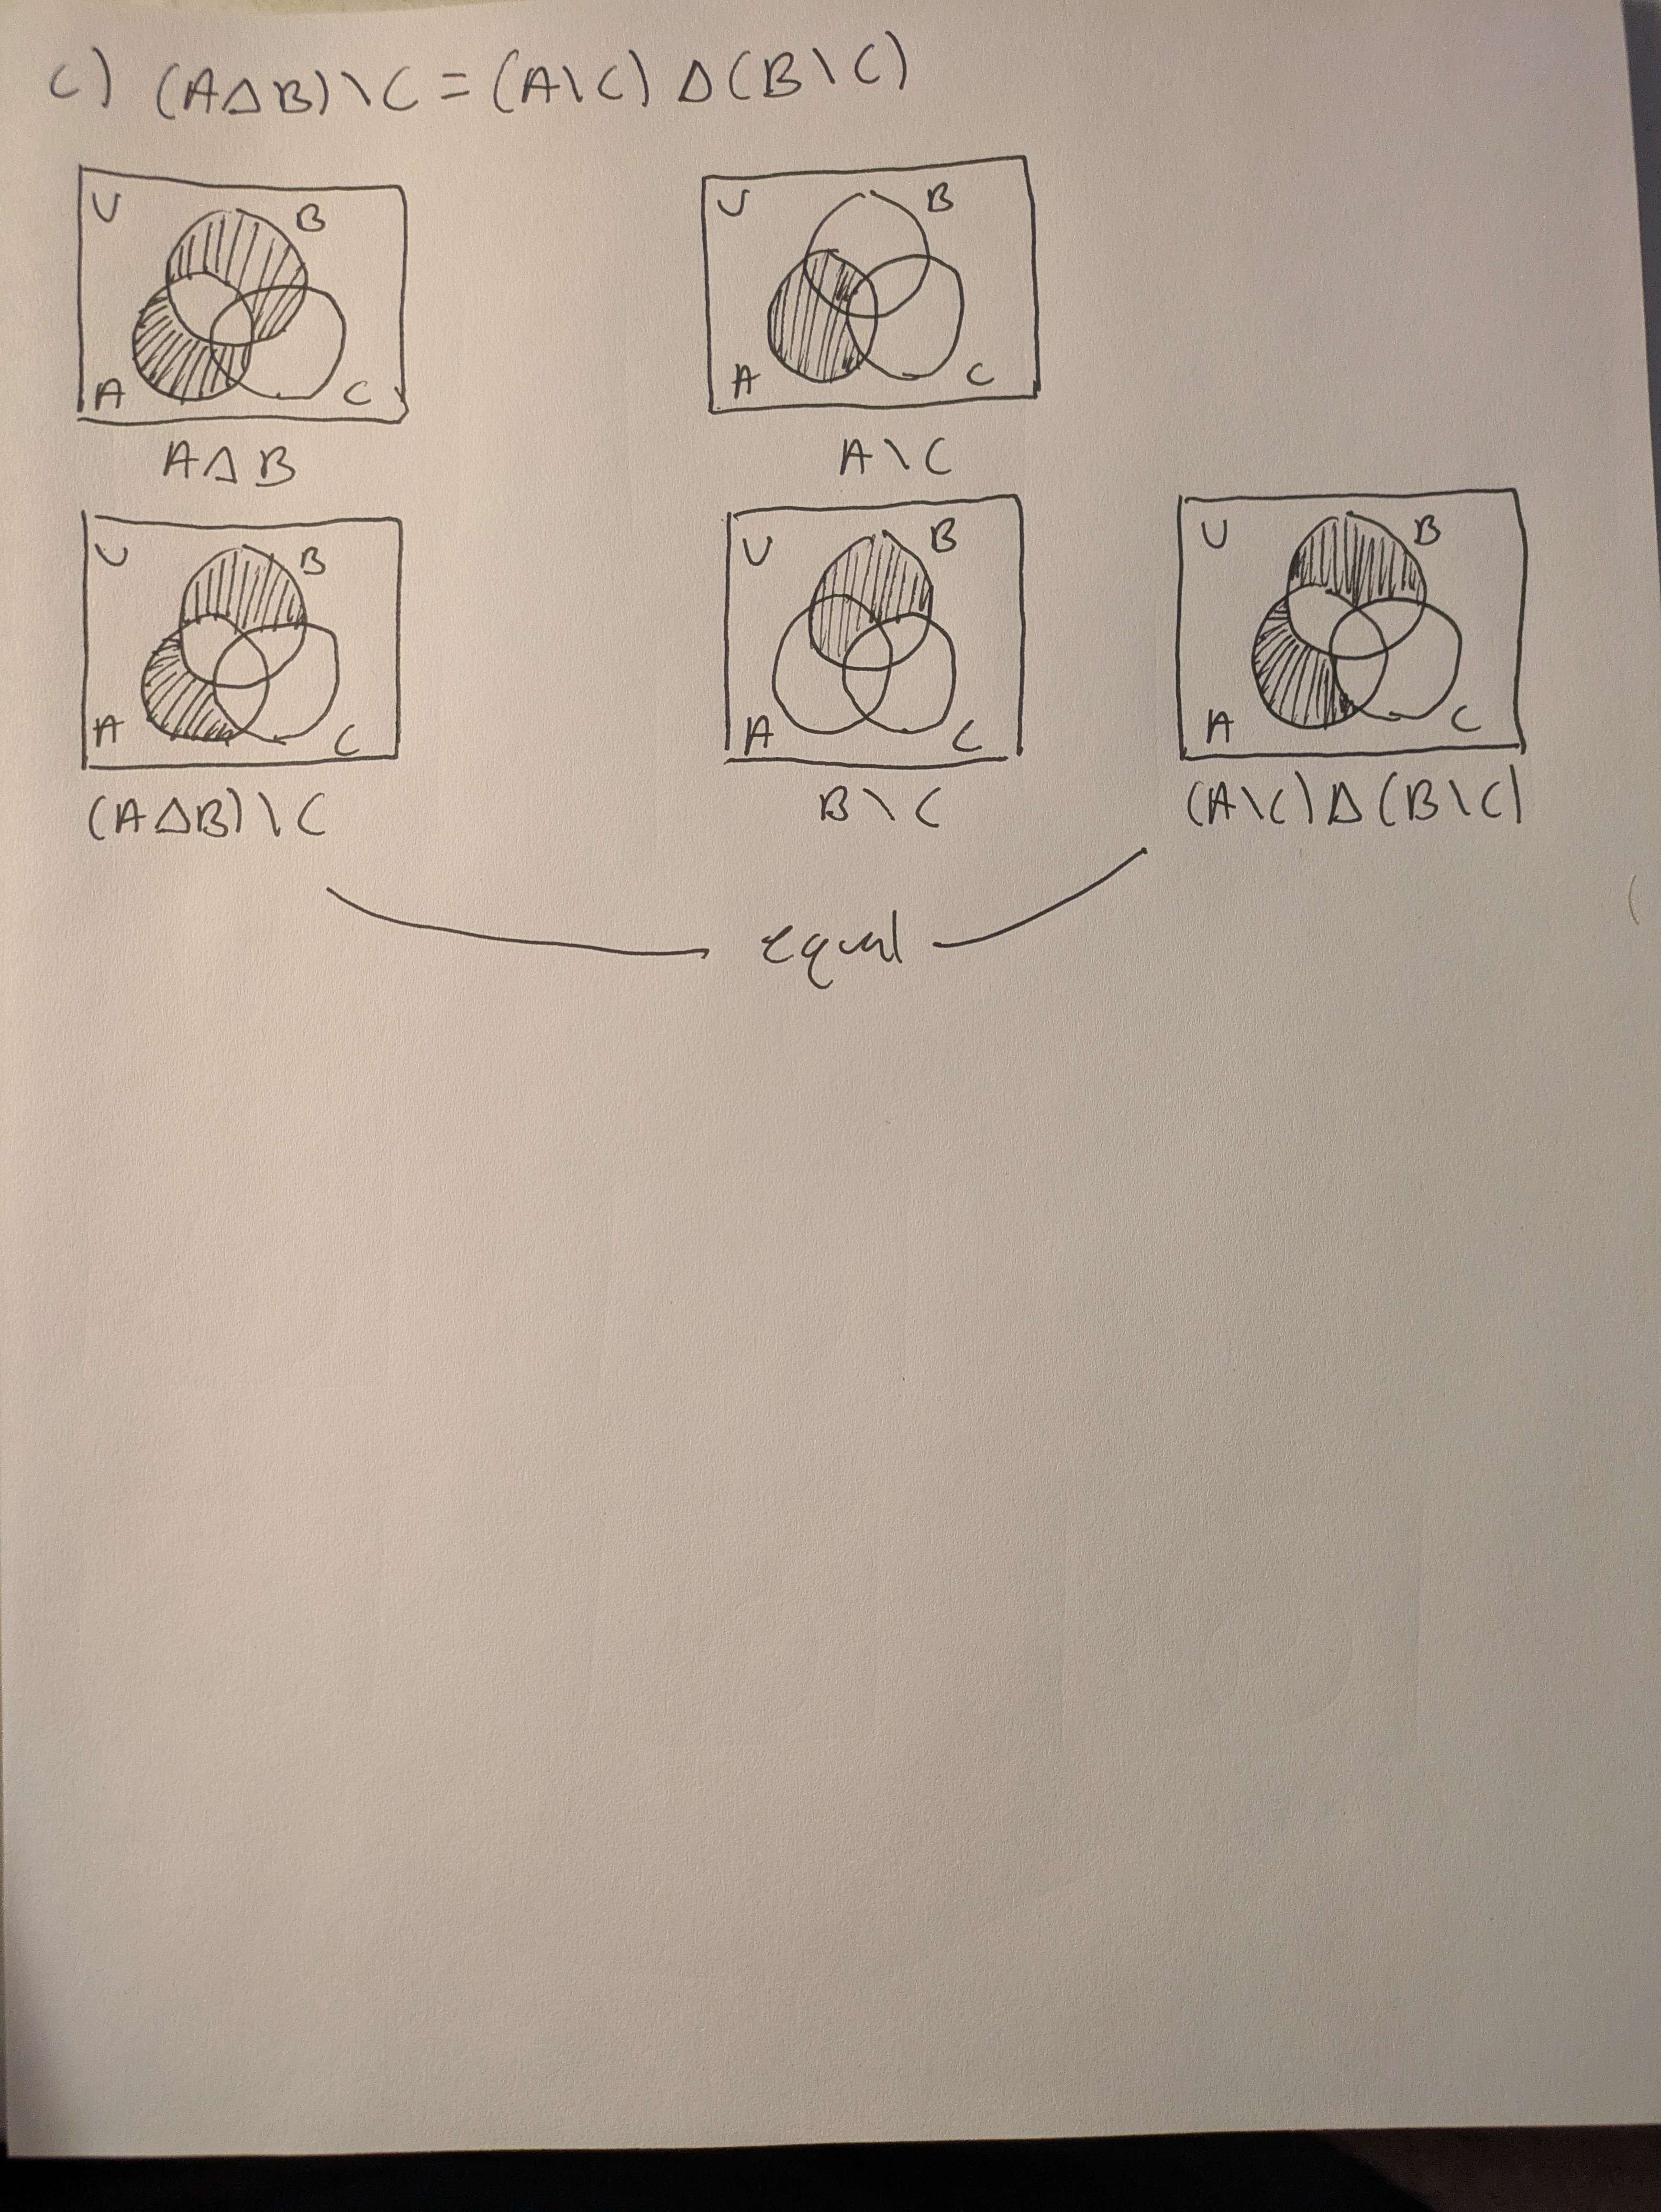 c) (AΔB)\C = (A\C) Δ (B\C)
U B
A C
AΔB
U B
A C
A\C
U B
A C
(AΔB)\C
U B
A C
B\C
U B
A C
(A\C) Δ (B\C)
equal